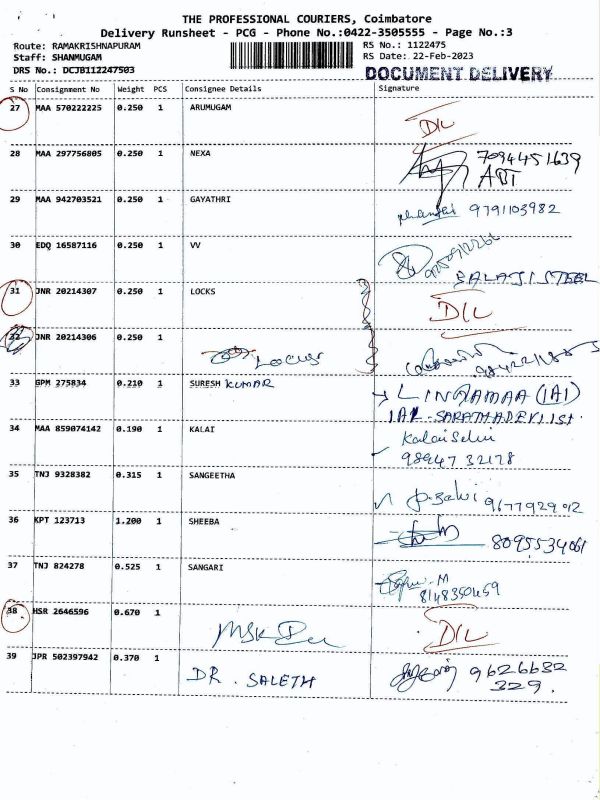 THE PROFESSIONAL COURIERS, Coimbatore
Delivery Runsheet - PCG - Phone No.:0422-3505555 - Page No.:3
Route: RAMAKRISHNAPURAM RS No.: 1122475
Staff: SHANMUGAM RS Date: 22-Feb-2023
DRS No.: DCJB112247503 DOCUMENT DELIVERY
S No Consignment No Weight PCS Consignee Details Signature
27 MAA 570222225 0.250 1 ARUMUGAM
D/L
28 MAA 297756805 0.250 1 NEXA 7094451639
ABT
29 MAA 942703521 0.250 1 GAYATHRI
9791103982
30 EDQ 16587116 0.250 1 VV
BALAJI STEEL
31 JNR 20214307 0.250 1 LOCKS D/L
32 JNR 20214306 0.250 1
Locus
33 GPM 275834 0.210 1 SURESH KUMAR
34 MAA 859074142 0.190 1 KALAI
Kalai Selvi
98947 32178
35 TNJ 9328382 0.315 1 SANGEETHA
36 KPT 123713 1.200 1 SHEEBA
8095534061
37 TNJ 824278 0.525 1 SANGARI
8148350459
38 HSR 2646596 0.670 1
D/L
39 JPR 502397942 0.370 1 DR. SALETH 9626632
329.